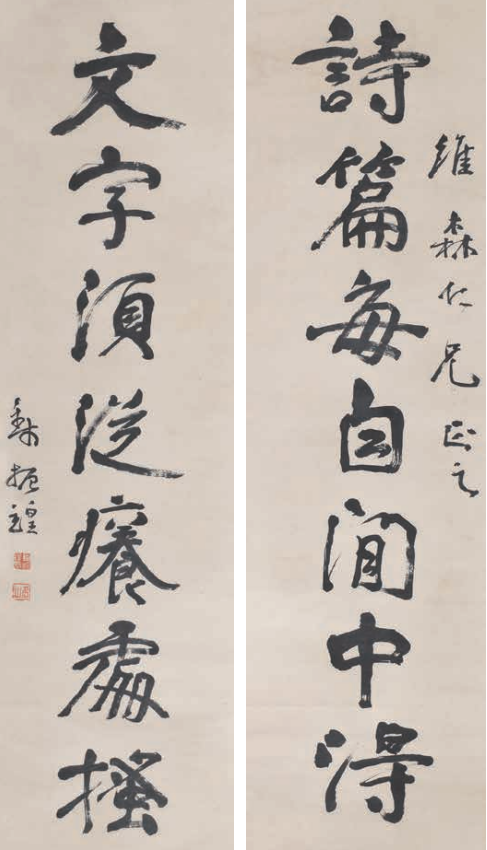 維森仁兄正之
詩篇每自閒中得
文字須從癢處搔
錢振鍠